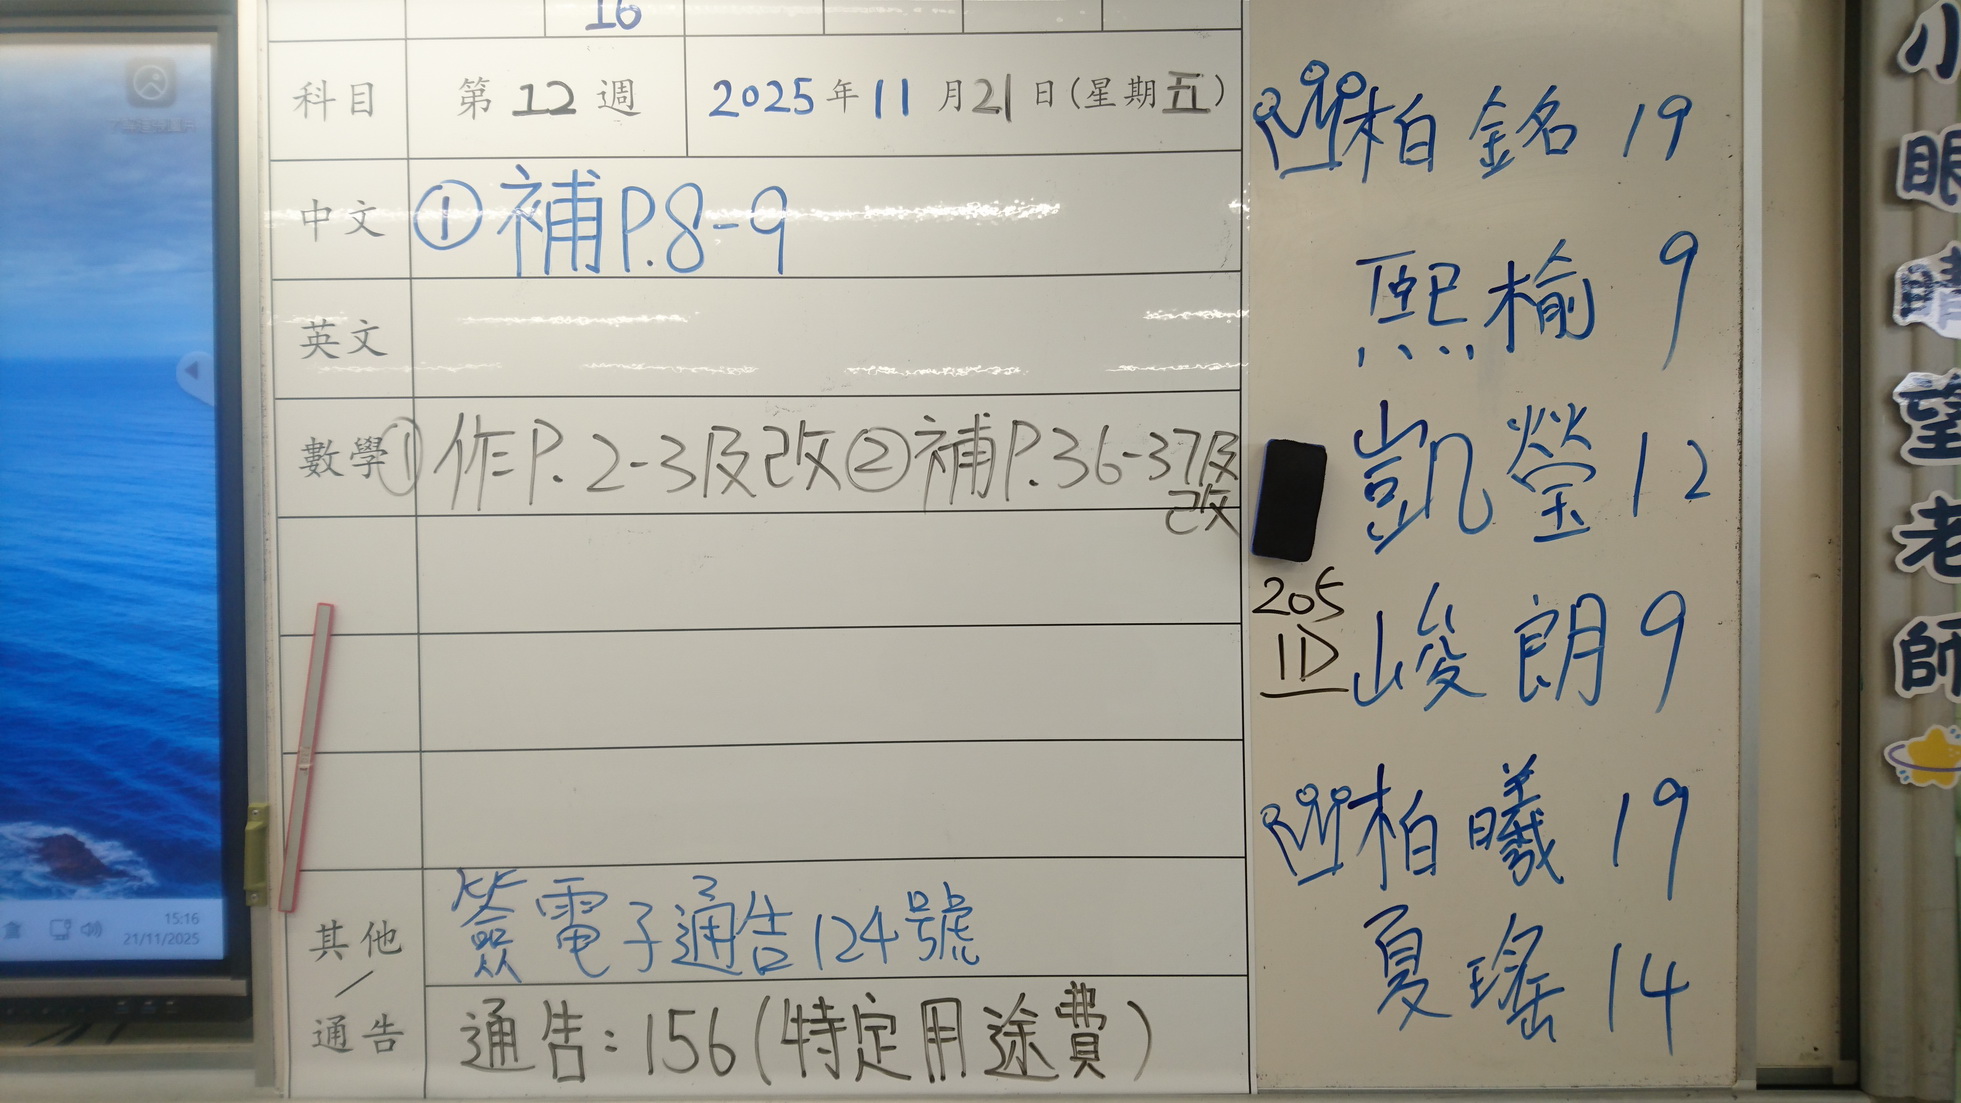 16
科目 第 12 週 2025 年 11 月 21 日 (星期 五)
中文 ① 補 P.8-9
英文
數學 ① 作 P. 2-3 及改 ② 補 P.36-37 及
改
其他
/
通告
簽電子通告 124 號
通告：156 (特定用途費)
柏銘 19
熙榆 9
凱瑩 12
205
1D
峻朗 9
柏曦 19
夏瑤 14
小
眼
睛
望
老
師
15:16
21/11/2025